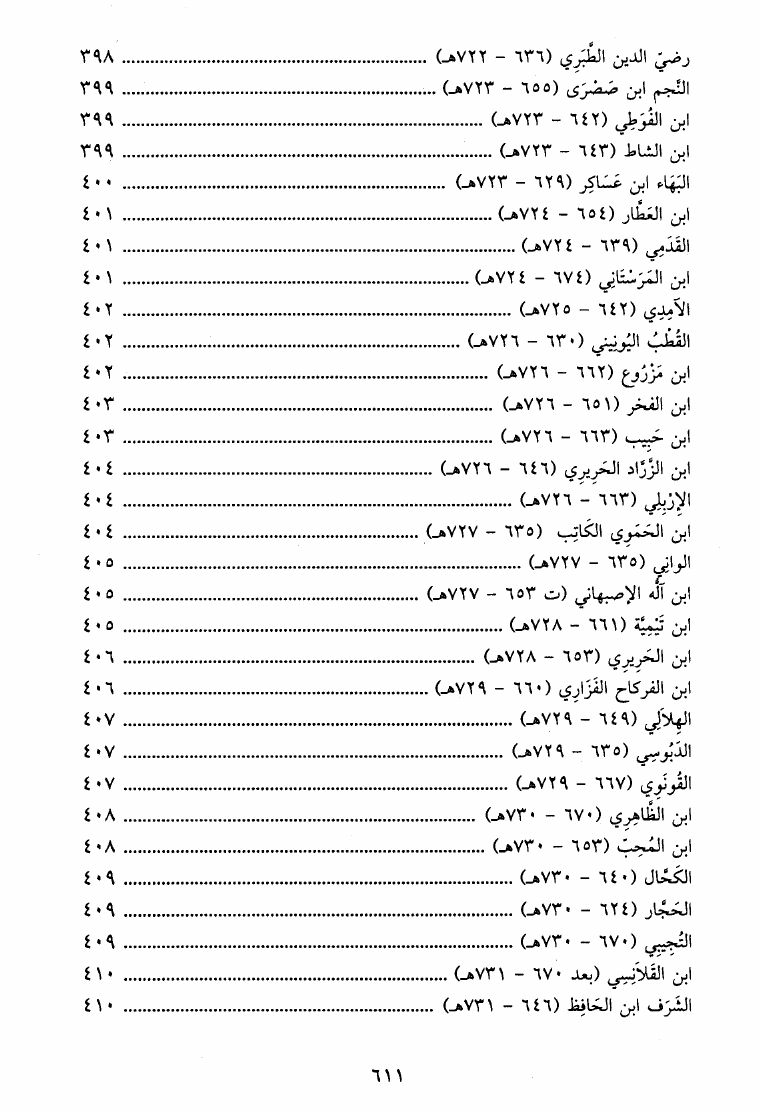 رضيّ الدين الطَّبَرِي (٦٣٦ - ٧٢٢هـ) ................ ٣٩٨
النَّجم ابن صَصْرَى (٦٥٥ - ٧٢٣هـ) ................ ٣٩٩
ابن الفُوَطِي (٦٤٢ - ٧٢٣هـ) ................ ٣٩٩
ابن الشاط (٦٤٣ - ٧٢٣هـ) ................ ٣٩٩
البَهَاء ابن عَسَاكِر (٦٢٩ - ٧٢٣هـ) ................ ٤٠٠
ابن العَطَّار (٦٥٤ - ٧٢٤هـ) ................ ٤٠١
القَدَمِي (٦٣٩ - ٧٢٤هـ) ................ ٤٠١
ابن المَرَسْتَانِي (٦٧٤ - ٧٢٤هـ) ................ ٤٠١
الآمِدِي (٦٤٢ - ٧٢٥هـ) ................ ٤٠٢
القُطْبُ اليُونِيني (٦٣٠ - ٧٢٦هـ) ................ ٤٠٢
ابن مَزْرُوع (٦٦٢ - ٧٢٦هـ) ................ ٤٠٢
ابن الفخر (٦٥١ - ٧٢٦هـ) ................ ٤٠٣
ابن حَبِيب (٦٦٣ - ٧٢٦هـ) ................ ٤٠٣
ابن الزَّرَّاد الحَرِيرِي (٦٤٦ - ٧٢٦هـ) ................ ٤٠٤
الإِرْبِلِي (٦٦٣ - ٧٢٦هـ) ................ ٤٠٤
ابن الحَمَوِي الكَاتِب (٦٣٥ - ٧٢٧هـ) ................ ٤٠٤
الوانِي (٦٣٥ - ٧٢٧هـ) ................ ٤٠٥
ابن ألُه الإصبهاني (ت ٦٥٣ - ٧٢٧هـ) ................ ٤٠٥
ابن تَيْمِيَّة (٦٦١ - ٧٢٨هـ) ................ ٤٠٥
ابن الحَرِيرِي (٦٥٣ - ٧٢٨هـ) ................ ٤٠٦
ابن الفركاح الفَزَارِي (٦٦٠ - ٧٢٩هـ) ................ ٤٠٦
الهِلَالِي (٦٤٩ - ٧٢٩هـ) ................ ٤٠٧
الدَبُوسِي (٦٣٥ - ٧٢٩هـ) ................ ٤٠٧
القُونَوِي (٦٦٧ - ٧٢٩هـ) ................ ٤٠٧
ابن الظَّاهِرِي (٦٧٠ - ٧٣٠هـ) ................ ٤٠٨
ابن المُحِبّ (٦٥٣ - ٧٣٠هـ) ................ ٤٠٨
الكَحَّال (٦٤٠ - ٧٣٠هـ) ................ ٤٠٩
الحَجَّار (٦٢٤ - ٧٣٠هـ) ................ ٤٠٩
التُجِيبِي (٦٧٠ - ٧٣٠هـ) ................ ٤٠٩
ابن القَلَانِسِي (بعد ٦٧٠ - ٧٣١هـ) ................ ٤١٠
الشَرَف ابن الحَافِظ (٦٤٦ - ٧٣١هـ) ................ ٤١٠
٦١١